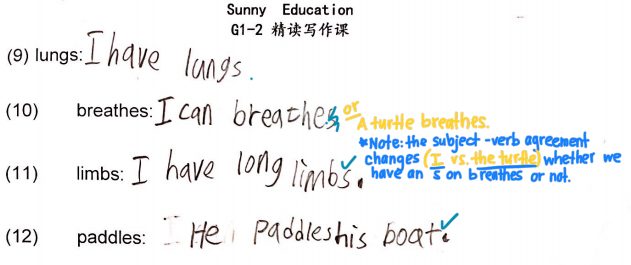 Sunny Education
G1-2 精读写作课
(9) lungs: I have lungs.
(10) breathes: I can breathes or A turtle breathes.
*Note: the subject-verb agreement
changes (I vs. the turtle) whether we
have an s on breathes or not.
(11) limbs: I have long limbs.
(12) paddles: I He paddles his boat.